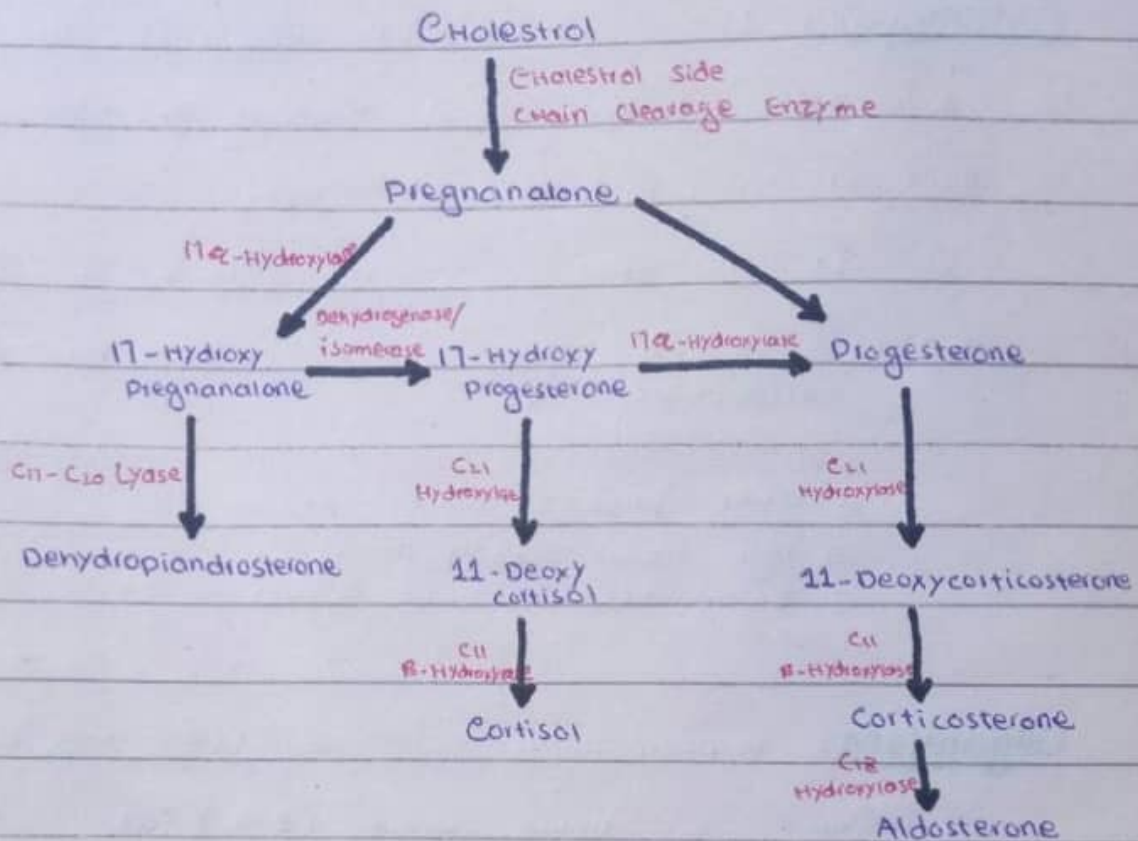 Cholestrol
Cholestrol side
chain Cleavage Enzyme
Pregnanalone
17α-Hydroxylase
Dehydrogenase/
isomerase
17α-Hydroxylase
17-Hydroxy
Pregnanalone
17-Hydroxy
Progesterone
Progesterone
C17-C20 Lyase
C21
Hydroxylase
C21
Hydroxylase
Dehydropiandrosterone
11-Deoxy
cortisol
11-Deoxycorticosterone
C11
B-Hydroxylase
C11
B-Hydroxylase
Cortisol
Corticosterone
C18
Hydroxylase
Aldosterone